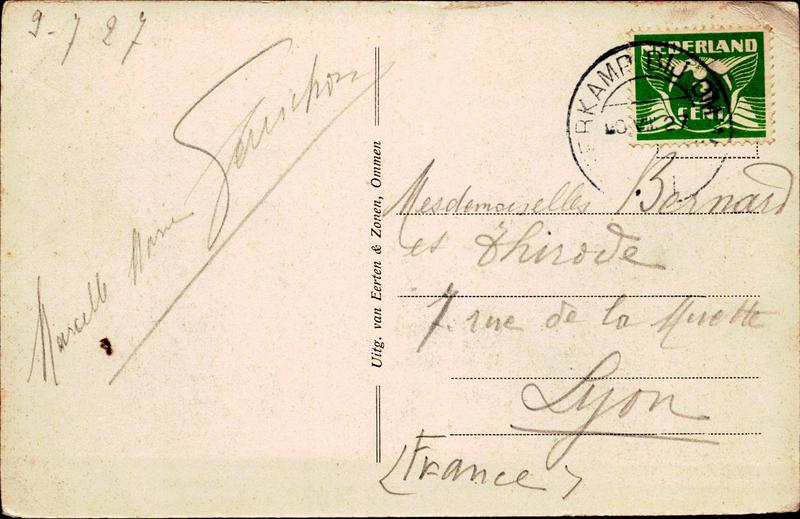 9-7 27
Marcelle Marie
Uitg. van Eerten & Zonen, Ommen
NEDERLAND
CENT
ERKAMP
Mesdemoiselles Bernard
et Thirode
7. rue de la Muette
Lyon
(France)